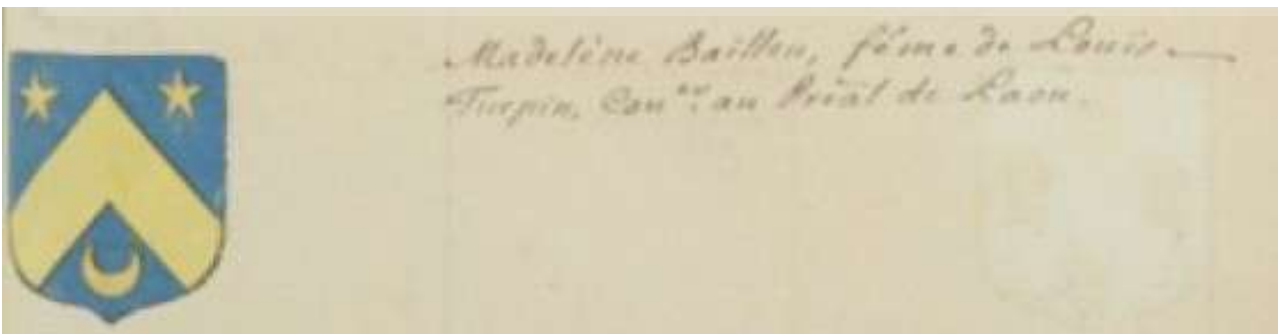 Madelène Baillen, fême de Louis
Turpin, Con.er au Prèal de Laon.